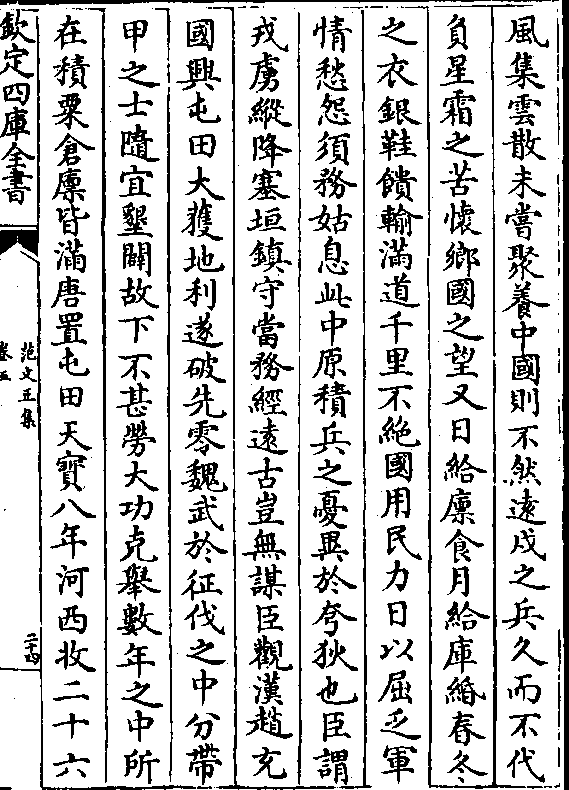 風集雲散未嘗聚養中國則不然遠戍之兵久而不代
負星霜之苦懷鄉國之望又日給廩食月給庫緡春冬
之衣銀鞋饋輸滿道千里不絕國用民力日以屈乏軍
情愁怨須務姑息此中原積兵之憂異於夸狄也臣謂
戎虜縱降塞垣鎮守當務經遠古豈無謀臣觀漢趙充
國興屯田大獲地利遂破先零魏武於征伐之中分帶
甲之士隨宜墾闢故下不甚勞大功克舉數年之中所
在積粟倉廩皆滿唐置屯田天寳八年河西收二十六
欽定四庫全書
范文正集
卷五
二十四